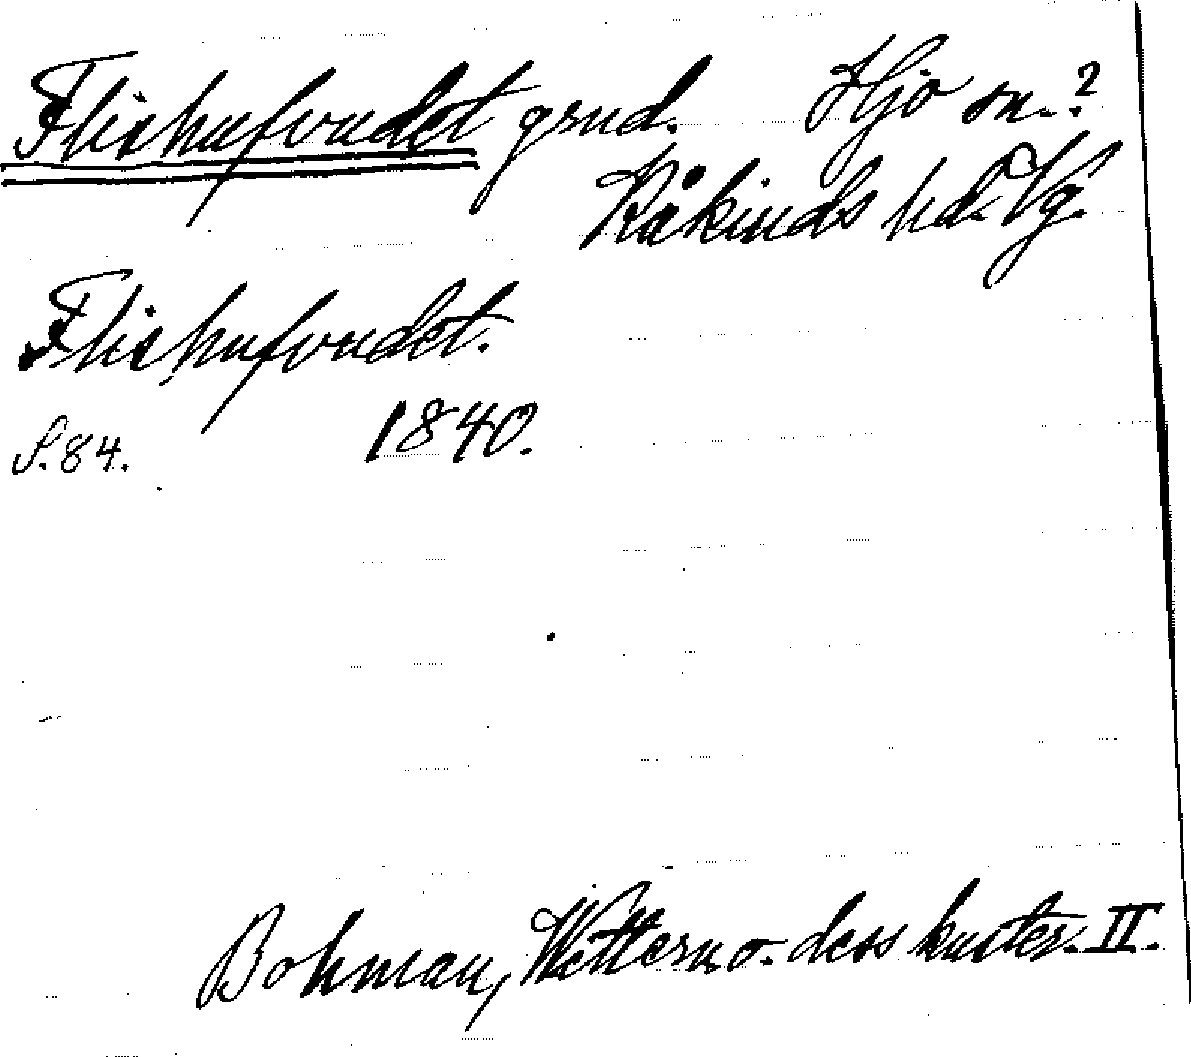 Flishufvudet grud. Hjo sn.?
Kåkinds hd. Vg.
Flishufvudet.
S. 84. 1840.
Bohman, Wettern o. dess kuster. II.